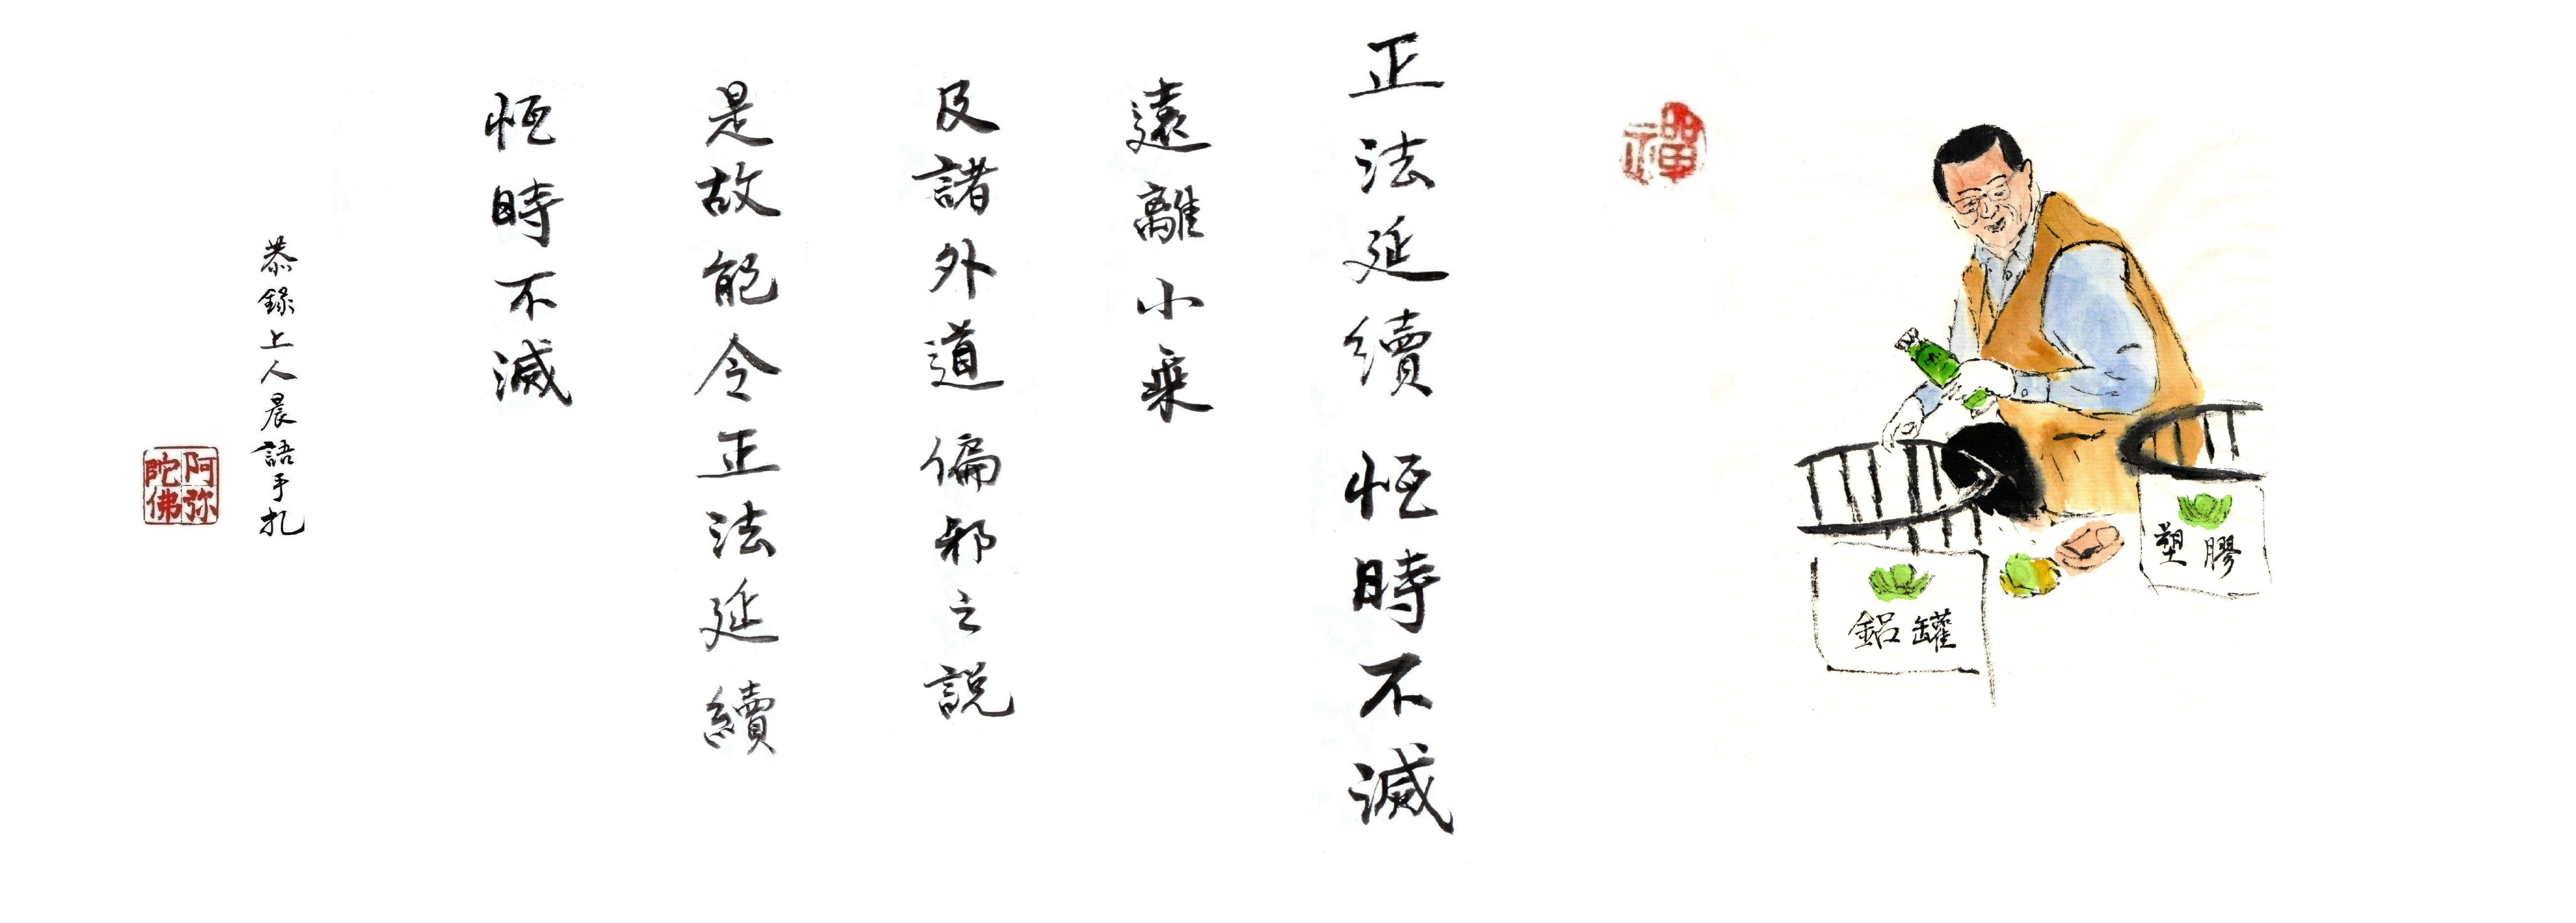 禪
正法延續 恆時不滅
遠離小乘
及諸外道偏邪之說
是故能令正法延續
恆時不滅
恭錄上人晨語手札
阿弥陀佛
塑膠
鋁罐